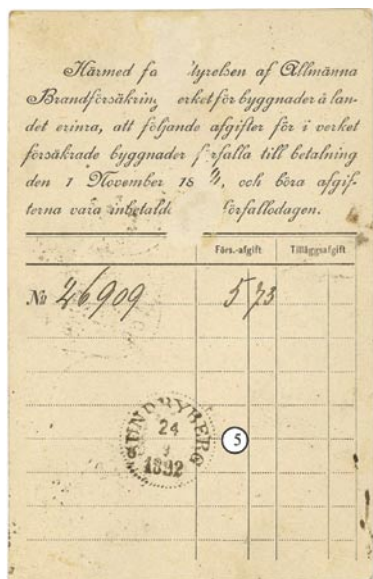 Härmed fa tyrelsen af Allmänna
Brandförsäkring erket för byggnader å lan-
det erinra, att följande afgifter för i verket
försäkrade byggnader f rfalla till betalning
den 1 November 18 och böra afgif-
terna vara inbetalda förfallodagen.
Förs.-afgift Tilläggsafgift
No 26909 5 73
SUNDBYBERG
24
1892
5